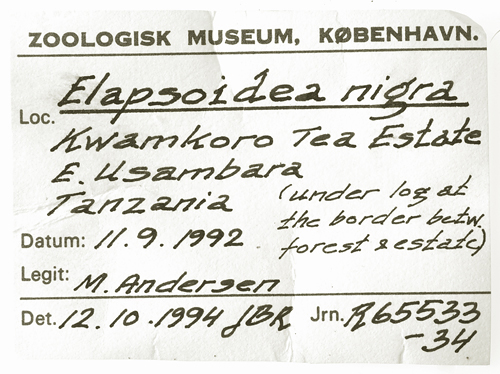 ZOOLOGISK MUSEUM, KØBENHAVN.
Elapsoidea nigra
Loc. Kwamkoro Tea Estate
E. Usambara
Tanzania (under log at
the border betw.
forest & estate)
Datum: 11.9.1992
Legit: M. Andersen
Det. 12.10.1994 JBR Jrn. R65533
-34